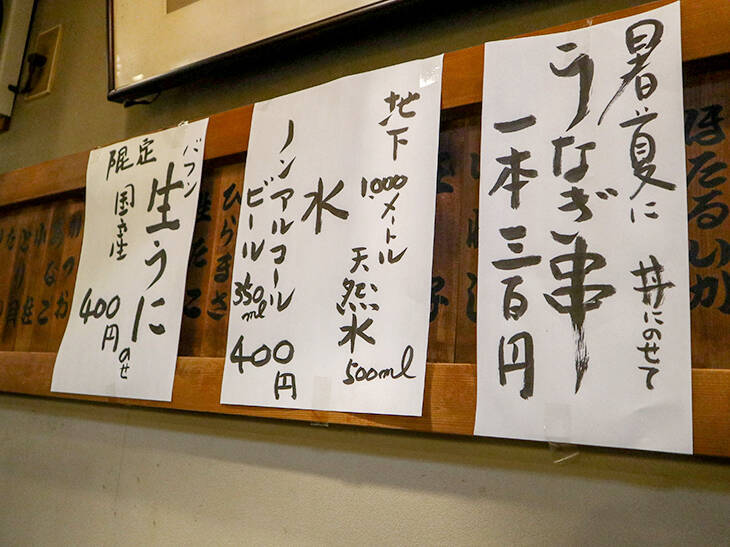 暑い夏に
うなぎ串
一本 三百円
丼にのせて
地下
1,000メートル
天然水
500ml
水
ノンアルコール
ビール 350ml
400円
バフン
生うに
限定
国産
400円
のせ
ほたるいか
ひらまさ